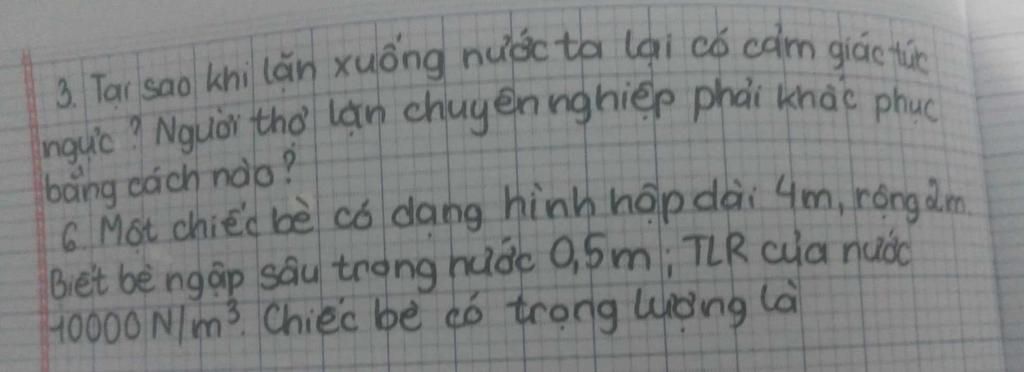 3. Tại sao khi lặn xuống nước ta lại có cảm giác tức
ngực? Người thợ lặn chuyên nghiệp phải khắc phục
bằng cách nào?
6. Một chiếc bè có dạng hình hộp dài 4m, rộng 2m.
Biết bè ngập sâu trong nước 0,5m; TLR của nước
10000 N/m³. Chiếc bè có trọng lượng là